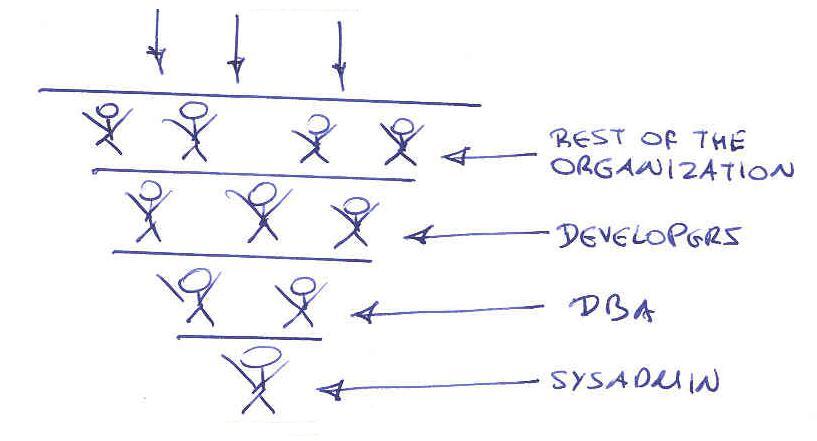 REST OF THE
ORGANIZATION
DEVELOPERS
DBA
SYSADMIN